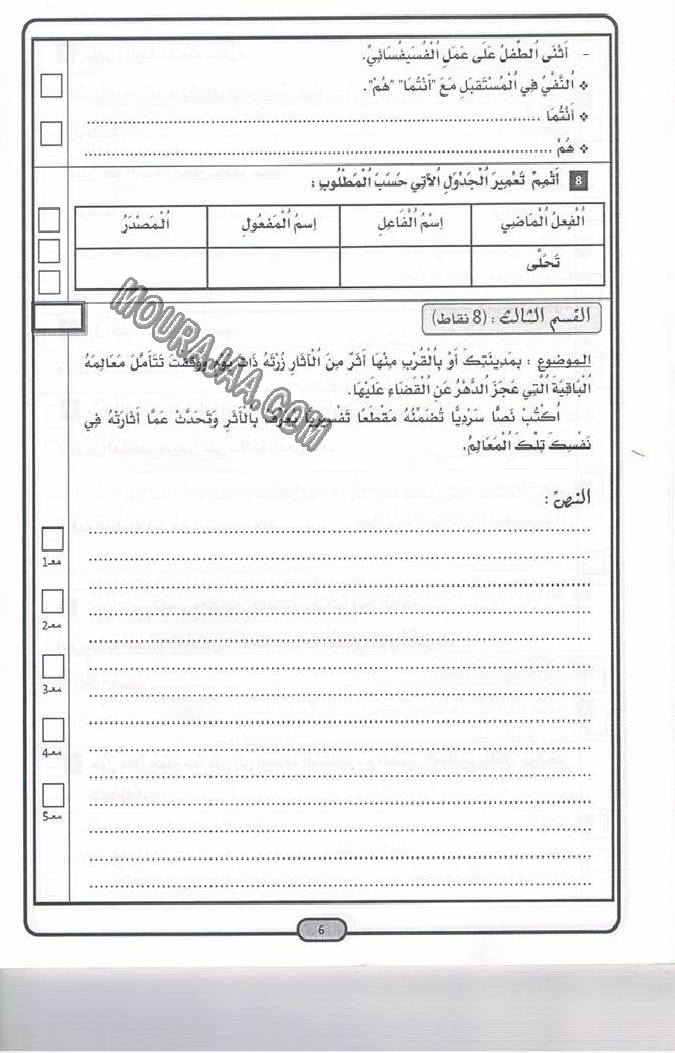 - اَثْنَى الطِّفْلُ عَلَى عَمَلِ الْفُسَيْفُسَائِيِّ.
❖ اَلنَّفْيُ فِي الْمُسْتَقْبَلِ مَعَ "اَنْتُمَا" "هُمْ".
❖ اَنْتُمَا ........................................
❖ هُمْ ........................................
8 اُتْمِمْ تَعْمِيرَ الْجَدْوَلِ الْآتِي حَسَبَ الْمَطْلُوبِ :
اَلْفِعْلُ الْمَاضِي اِسْمُ الْفَاعِلِ اِسمُ الْمَفْعُولِ اَلْمَصْدَرُ
تَحَلَّى
القسم الثالث : (8 نقاط)
الموضوع : بِمَدِينَتِكَ أَوْ بِالْقُرْبِ مِنْهَا اَثَرٌ مِنَ الْآثَارِ زُرْتَهُ ذَاتَ يَوْمٍ وَوَقَفْتَ تَتَأَمَّلُ مَعَالِمَهُ
الْبَاقِيَةَ الَّتِي عَجَزَ الدَّهْرُ عَنِ الْقَضَاءِ عَلَيْهَا.
اُكْتُبْ نَصًّا سَرْدِيًّا تُضَمِّنُهُ مَقْطَعًا تَفْسِيرِيًّا يُعَرِّفُ بِالْأَثَرِ وَتَحَدَّثْ عَمَّا أَثَارَتْهُ فِي
نَفْسِكَ تِلْكَ الْمَعَالِمُ.
MOURAJAA.COM
النص :
معـ1
معـ2
معـ3
معـ4
معـ5
6